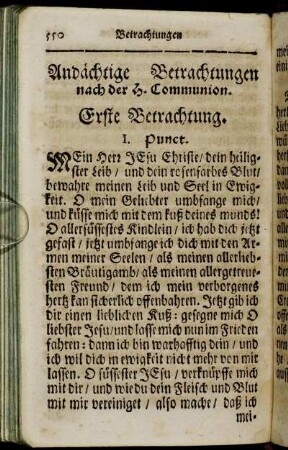 550 Betrachtungen
Andächtige Betrachtungen
nach der H. Communion.
Erste Betrachtung.
I. Punct.
MEin Herr JEsu Christe / dein heilig-
ster Leib / und dein rosenfarbes Blut /
bewahre meinen Leib und Seel in Ewig-
keit. O mein Geliebter umbfange mich /
und küsse mich mit dem kuß deines munds!
O allersüssestes Kindlein / ich hab dich jetzt
gefast / jetzt umbfange ich dich mit den Ar-
men meiner Seelen / als meinen allerlieb-
sten Bräutigamb / als meinen allergetreue-
sten Freund / dem ich mein verborgenes
hertz kan sicherlich offenbahren. Jetzt gib ich
dir einen lieblichen Kuß: gesegne mich O
liebster Jesu / und lasse mich nun im Frieden
fahren: dann ich bin warhafftig dein / und
ich wil dich in ewigkeit nicht mehr von mir
lassen. O süssester JEsu / verknüpffe mich
mit dir / und wie du dein Fleisch und Blut
mit mir vereiniget / also mache / daß ich
mei-